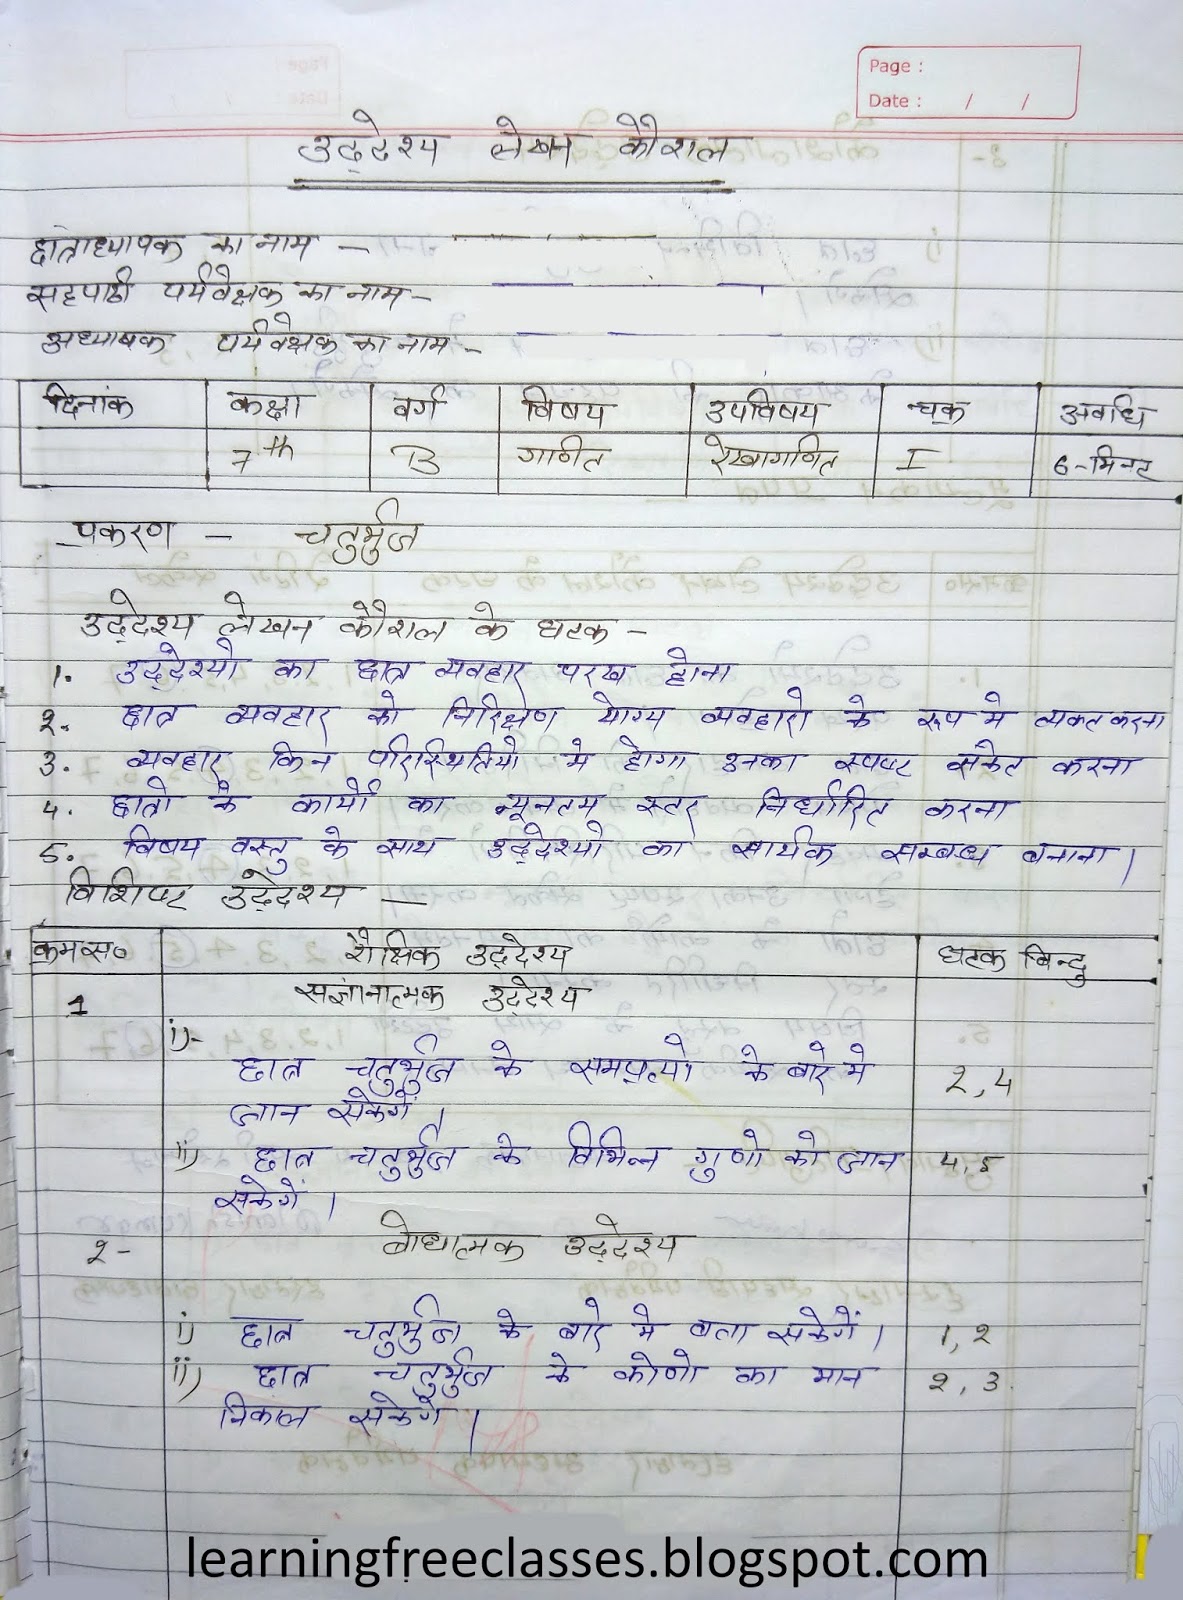 Page :
Date : / /
उद्देश्य लेखन कौशल
छात्राध्यापक का नाम -
सहपाठी पर्यवेक्षक का नाम -
अध्यापक पर्यवेक्षक का नाम -
दिनांक कक्षा वर्ग विषय उपविषय चक्र अवधि
7th B गणित रेखागणित I 6-मिनट
प्रकरण - चतुर्भुज
उद्देश्य लेखन कौशल के घटक -
1. उद्देश्यो का छात्र व्यवहार परख होना
2. छात्र व्यवहार को निरिक्षण योग्य व्यवहारो के रूप मे व्यक्त करना
3. व्यवहार किन परिस्थितियो मे होगा उनका स्पष्ट संकेत करना
4. छात्रो के कार्यो का न्यूनतम स्तर निर्धारित करना
5. विषय वस्तु के साथ उद्देश्यो का सार्थक सम्बन्ध बनाना।
विशिष्ट उद्देश्य -
क्रमस० शैक्षिक उद्देश्य घटक बिन्दु
1 सज्ञानात्मक उद्देश्य
i)-
छात्र चतुर्भुज के के बारे मे 2,4
जान सकेगें।
ii) छात्र चतुर्भुज के विभिन्न गुणो को जान 4,5
सकेगें।
2- बोधात्मक उद्देश्य
i) छात्र चतुर्भुज के बारे मे बता सकेगें। 1,2
ii) छात्र चतुर्भुज के कोणो का मान 2,3
निकाल सकेगें।
learningfreeclasses.blogspot.com